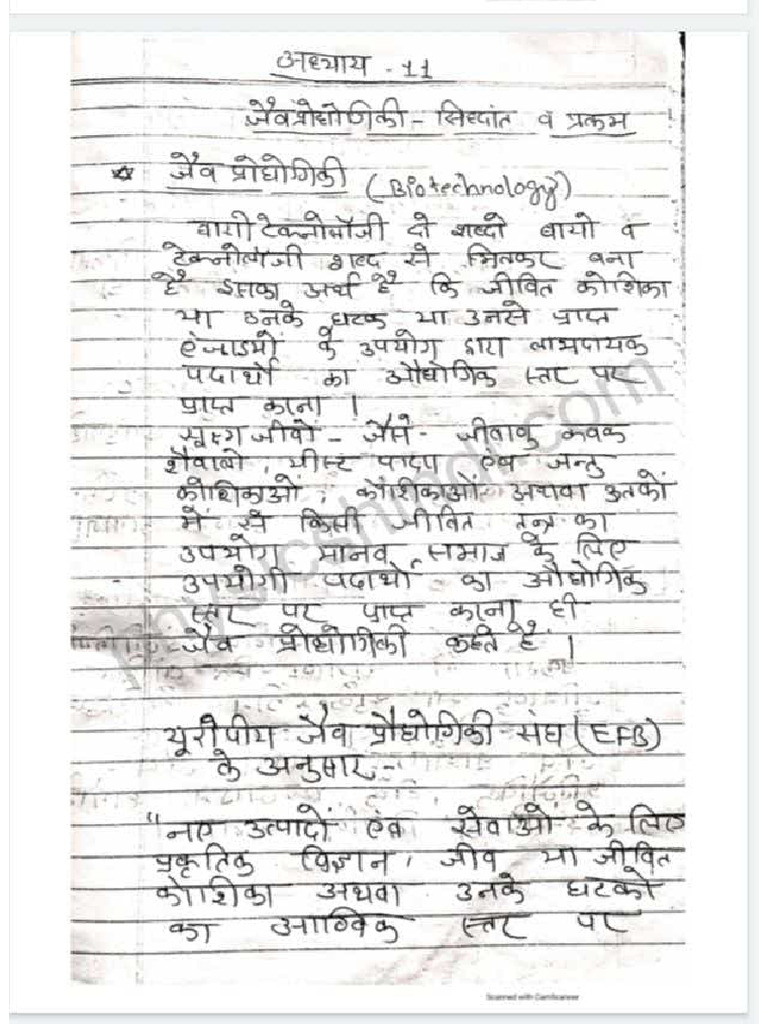 अध्याय - 11
जैवप्रोद्योगिकी - सिध्दांत व प्रक्रम
☆ जैव प्रोद्योगिकी (Biotechnology)
बायोटेक्नोलॉजी दो शब्दो बायो व
टेक्नोलॉजी शब्द से मिलकर बना
है इसका अर्थ है कि जीवित कोशिका
या उनके घटक या उनसे प्राप्त
एंजाइमों के उपयोग द्वारा लाभदायक
पदार्थो का औद्योगिक स्तर पर
प्राप्त करना |
सूक्ष्म जीवों - जैसे - जीवाणु कवक
शैवालो, यीस्ट पादप एंव जन्तु
कोशिकाओं, कोशिकाओं अथवा ऊतकों
में से किसी जीवित तन्त्र का
उपयोग मानव समाज के लिए
उपयोगी पदार्थो का औद्योगिक
स्तर पर प्राप्त करना ही
जैव प्रोद्योगिकी कहते है |
यूरोपीय जैव प्रौद्योगिकी संघ (EFB)
के अनुसार -
"नए उत्पादों एंव सेवाओं के लिए
प्रकृतिक विज्ञान, जीव या जीवित
कोशिका अथवा उनके घटको
का आण्विक स्तर पर
physicshindi.com
Scanned with CamScanner